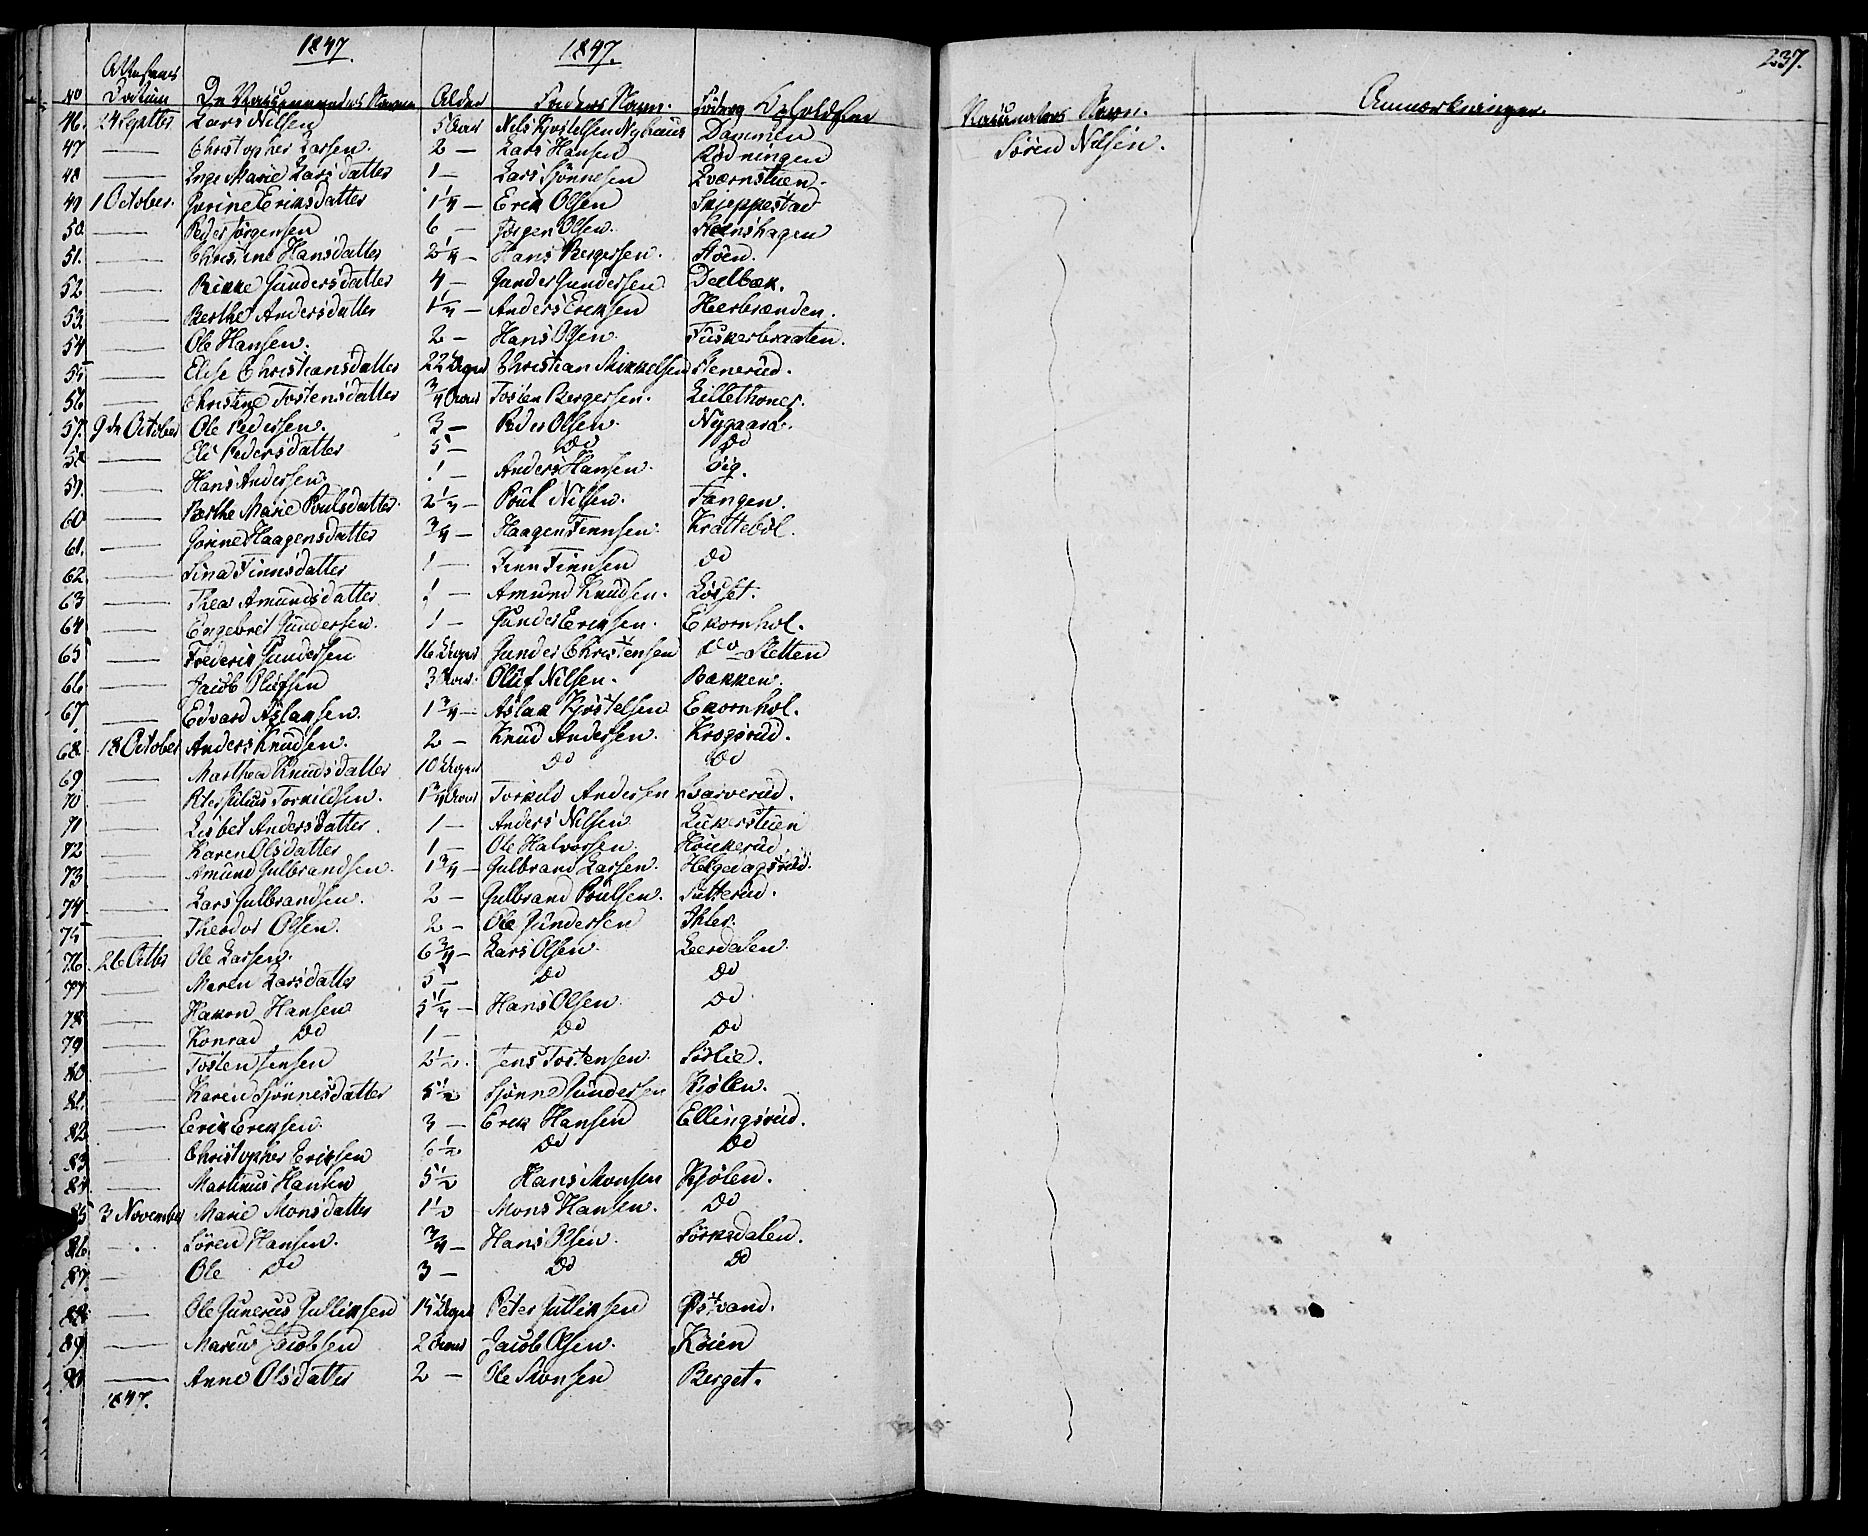 1847 1847.
No Attestens Datum De Vaccineredes Navne Alder Faders Navn. Fødse og Opholdsted
46. 24 Septber Lars Nilsen 5 Aar Nils Kjostelsen Nyhaus Dammen
47 — Christopher Larsen. 2 — Lars Hansen Rødningen
48 — Inge Marie Larsdatter 1 — Lars Sjønnesen Qværnstuen.
49 1 October. Gorine Eriksdatter 1 1/4 — Erik Olsen Skjeppestad
50. — Peder Jørgensen 6 — Jørgen Olsen. Steenshagen
51. — Christine Hansdatter 2 1/4 — Hans Bergersen. Støen.
52 — Rikke Gundersdatter 4 — Gunder Gundersen Dælbæk.
53. — Berthe Andersdatter 1 1/2 — Anders Eriksen Herbrænden.
54 — Ole Hansen. 2 — Hans Olsen. Tuskerbraaten.
55 — Elise Christiansdatter 22 Uger Christian Mikkelsen Stenerud.
56 — Christine Tostensdatter 3/4 Aar Tosten Bergersen. Lillethoner.
57. 9de October Ole Pedersen. 3 — Peder Olsen. Nygaard.
58 — Eli Pedersdatter 5 — Do Do
59. — Hans Andersen. 1 — Anders Hansen. Vig.
60 — Berthe Marie Poulsdatter 2 1/2 — Poul Nilsen. Tangen.
61. — Gorine Haagensdatter 3/4 — Haagen Finnsen. Krattebøl.
62 — Sina Finnsdatter 1 — Finn Finnsen do
63 — Thea Amundsdatter 1 — Amund Knudsen. Løset.
64 — Engebret Gundersen. 1 — Gunder Eriksen. Ekornhol.
65 — Frederik Gundersen 16 Uger Gunder Christensen Do Sletten
66 — Jacob Olufsen 3 Aar. Oluf Nilsen. Bakken.
67 — Edvard Aslaksen. 1 3/4 — Aslak Kjostelsen Ekornhol.
68. 18 October Anders Knudsen. 2 — Knud Andersen. Krogsrud.
69 — Marthea Knudsdatter 10 Uger Do Do
70 — Peter Julius Torkildsen. 1 3/4 Aar Torkild Andersen Garverud.
71 — Lisbet Andersdatter. 1 — Anders Nilsen Lukerstuen
72 — Karen Olsdatter 1 — Ole Halvorsen. Houkerud
73 — Amund Gulbrandsen. 1 3/4 — Gulbrand Larsen. Helgedagsrud.
74 — Lars Gulbrandsen. 2 — Gulbrand Poulsen. Sutterud.
75 — Theodor Olsen. 2 — Ole Gundersen Ihler.
76. 26 Octbr Ole Larsen. 6 3/4 — Lars Olsen. Leerdalen.
77 — Maren Larsdatter 5 — Do Do
78 — Hakon Hansen 5 1/2 — Hans Olsen Do.
79 — Konrad Do 1 — Do Do
80 — Tosten Jensen 2 1/2. Jens Tostensen. Sørlie.
81. — Karen Sjønnesdatter 5 1/2 Sjønne Gundersen Kjølen.
82 — Erik Eriksen. 3 — Erik Hansen Ellingsrud.
83 — Christopher Eriksen 6 1/2. Do Do
84. — Martinus Hansen 5 1/2 Hans Monsen Kjølen.
85 3 November Marie Monsdatter 1 1/2 Mons Hansen. Do
86. — Søren Hansen. 3/4 — Hans Olsen. Sørksdalen.
87. — Ole Do 3 — Do Do
88. — Ole Gunerus Gulliksen 15 Uger Peter Gulliksen Østvand.
89. — Marius Jacobsen 2 Aar Jacob Olsen. Køien
90 — Anne Olsdatter 2 — Ole Monsen Berget.
1847.
237.
Vaccinators Navn. Anmærkninger.
Søren Nilsen.